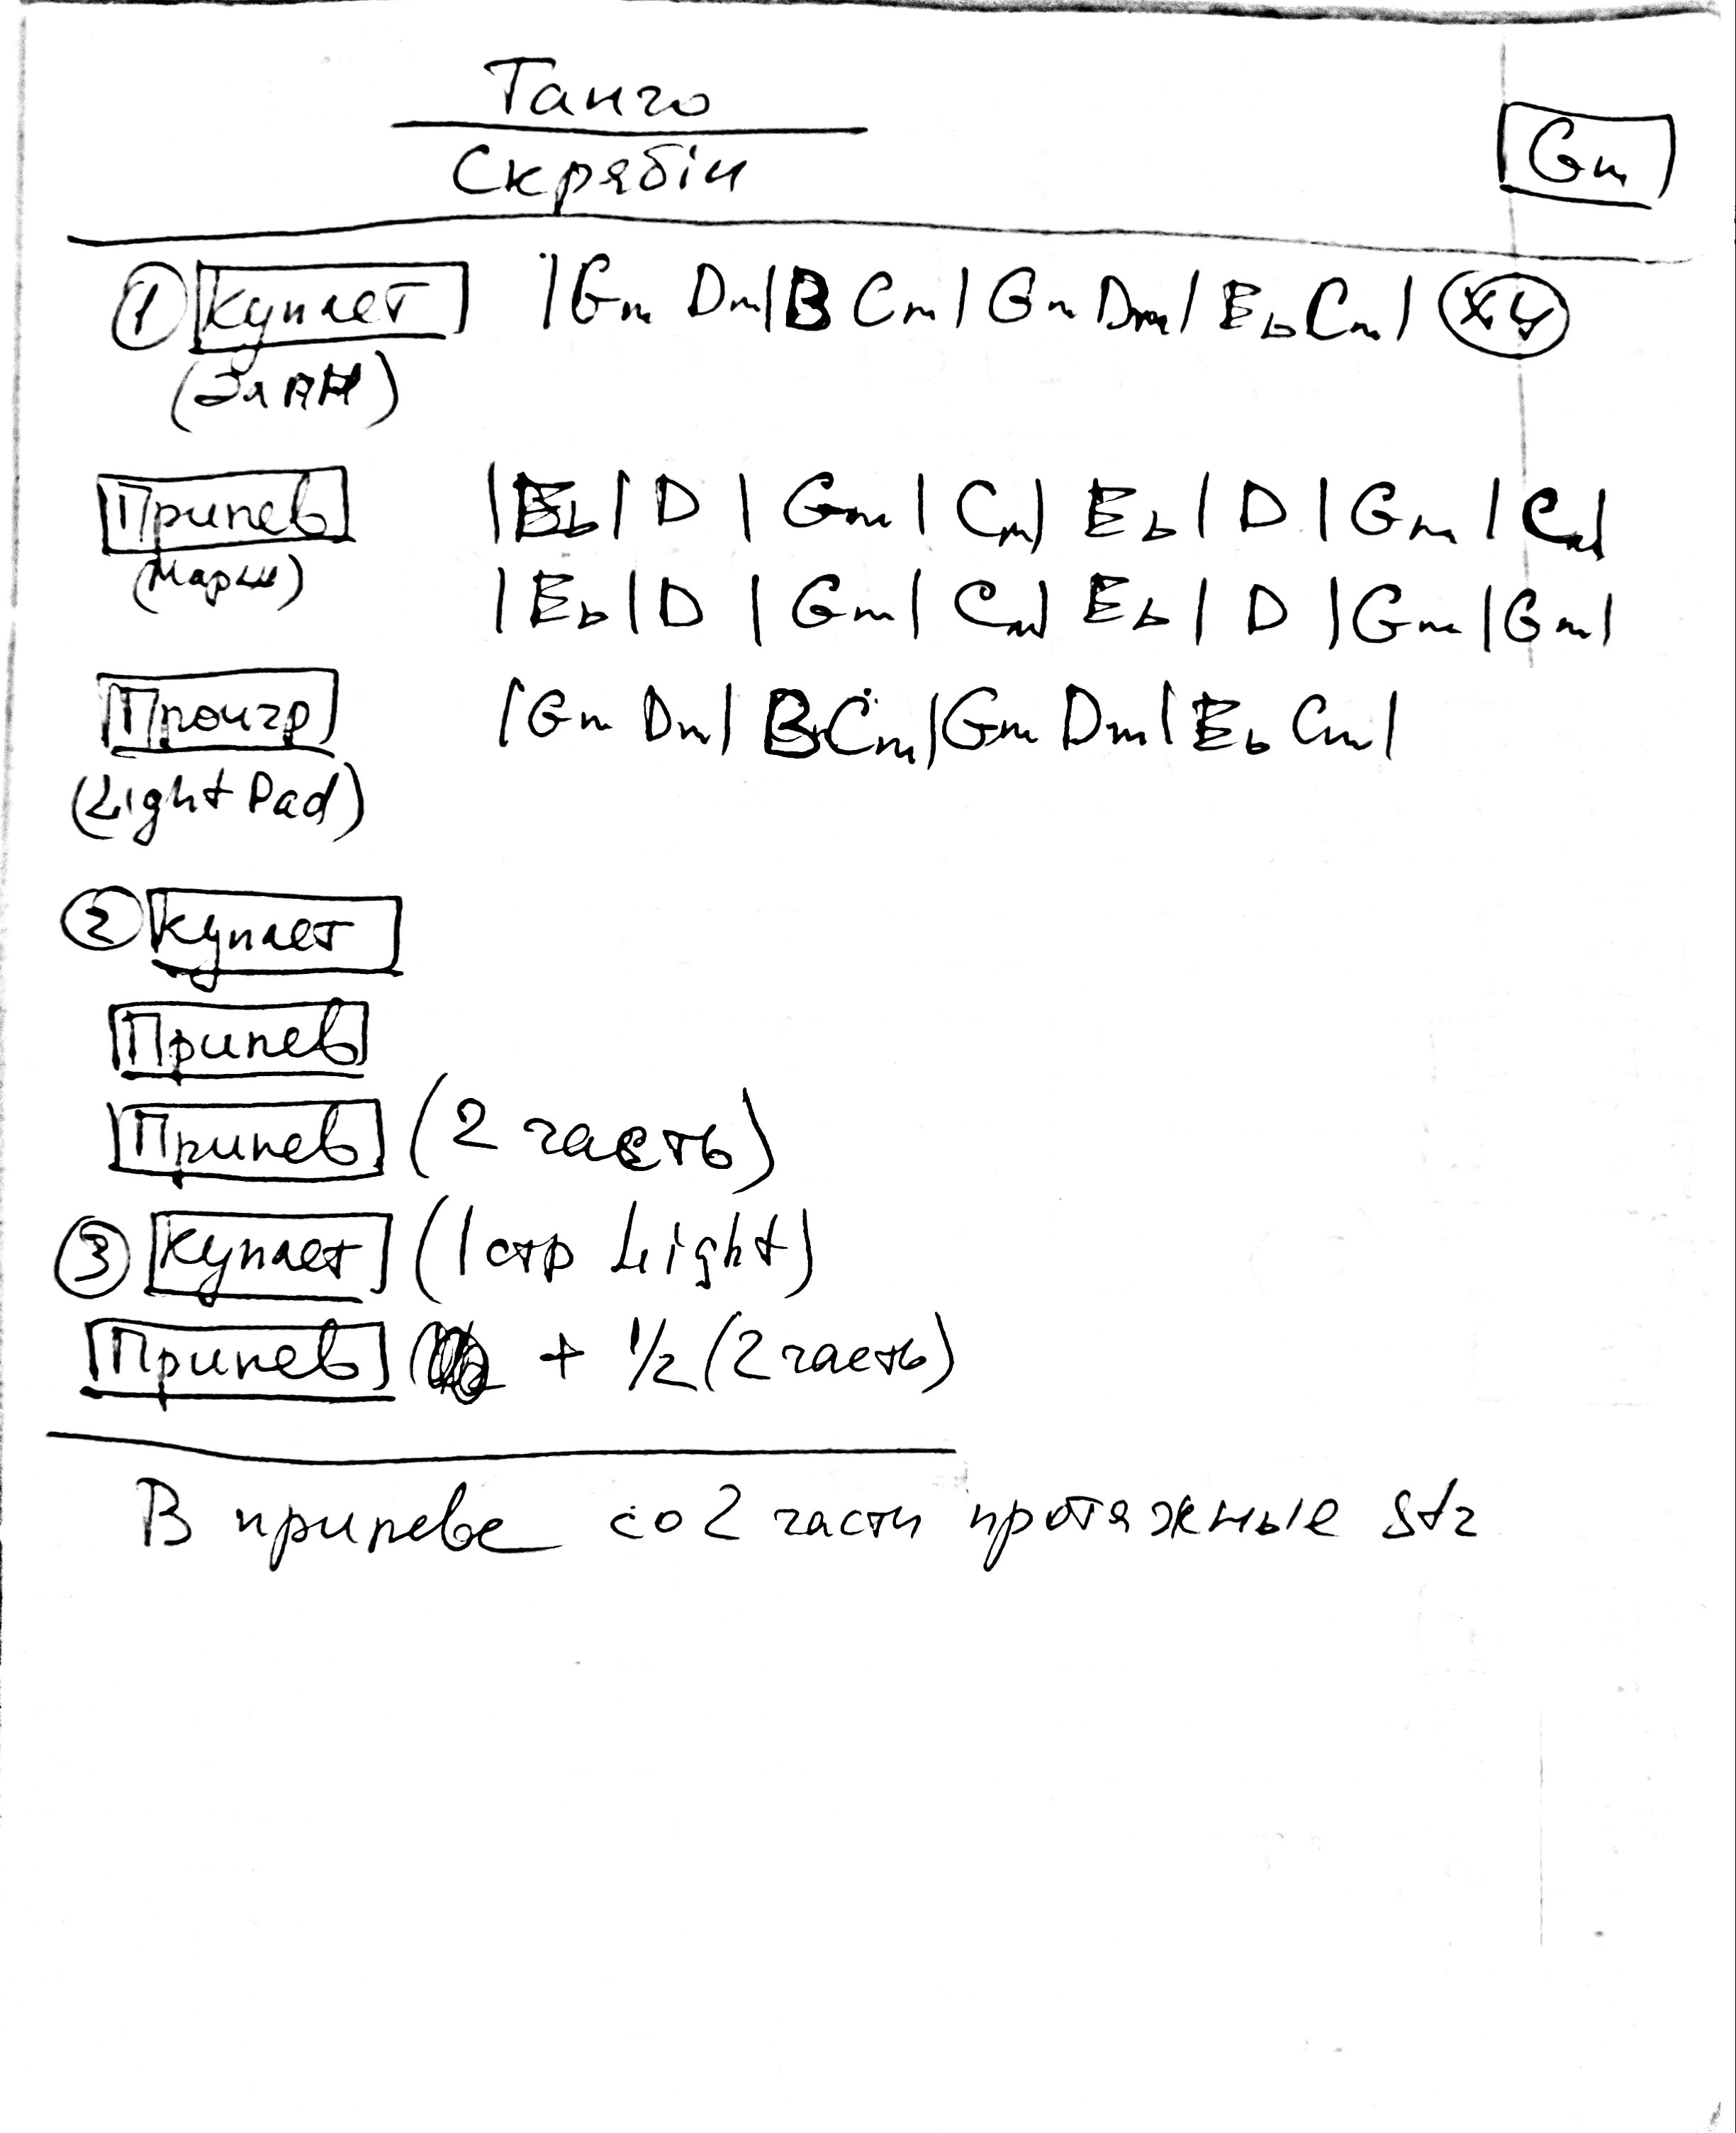 Танго
Скрябін
Gm
1 Куплет |Gm Dm|B Cm|Gm Dm|Eb Cm| x4
(Эл АН)
Припев |Eb|D|Gm|Cm|Eb|D|Gm|Cm|
(Марш) |Eb|D|Gm|Cm|Eb|D|Gm|Gm|
Проигр |Gm Dm|B Cm|Gm Dm|Eb Cm|
(Light Pad)
2 Куплет
Припев
Припев (2 часть)
3 Куплет (1 стр Light)
Припев + 1/2 (2 часть)
В припеве со 2 части протяжные Str